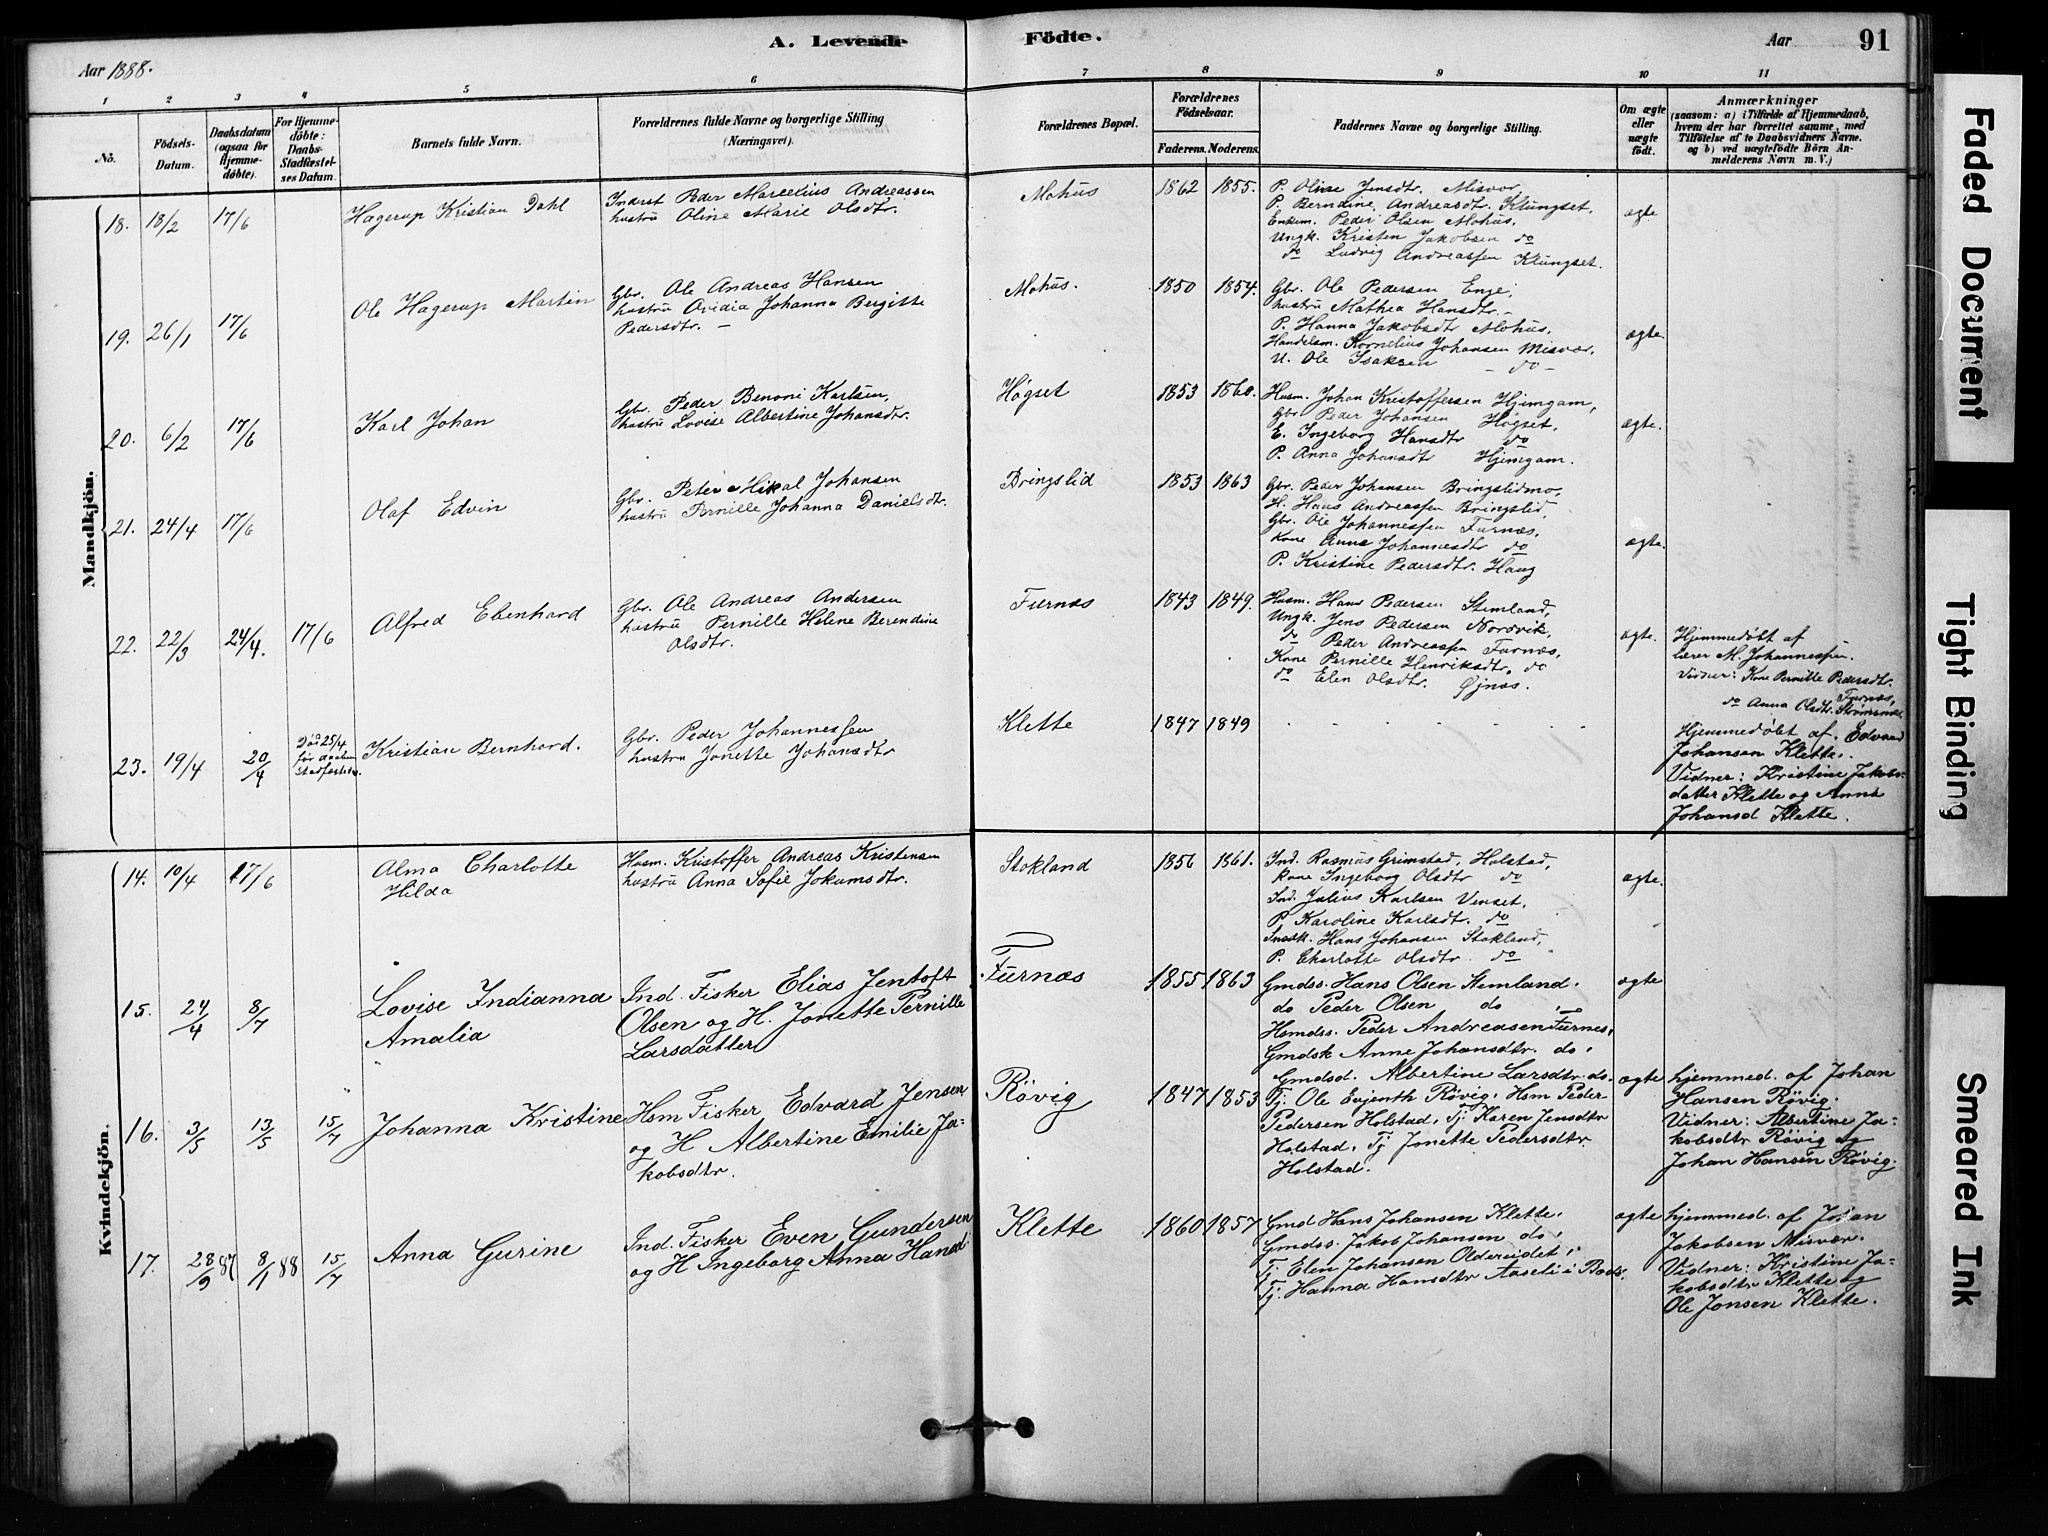 A. Levende
Födte.
Aar
91
Aar 1888.
1
2
3
4
5
6
7
8
9
10
11
No.
Födsels-
Datum.
Daabsdatum
(ogsaa for
Hjemme-
döbte).
For Hjemme-
döbte:
Daabs-
Stadfæstel-
ses Datum.
Barnets fulde Navn.
Forældrenes fulde Navne og borgerlige Stilling
(Næringsvei).
Forældrenes Bopæl.
Forældrenes
Födselsaar.
Faderens.
Moderens.
Faddernes Navne og borgerlige Stilling.
Om ægte
eller
uægte
födt.
Anmærkninger
(saasom: a) i Tilfælde af Hjemmedaab,
hvem der har forrettet samme, med
Tilföielse af to Daabsvidners Navne.
og b) ved uægtefödte Börn An-
melderens Navn m. V.)
Mandkjön.
18. 18/2 17/6
Hagerup Kristian Dahl
Inderst Peder Marcelius Andreassen
hustru Oline Marie Olsdtr.
Mohus
1862 1855.
P. Oline Jensdtr. Misvær,
P. Berndine Andreasdtr. Klungset,
Enkem. Peder Olsen Mohus,
Ungk. Kristen Jakobsen do
do Ludvig Andreassen Klungset.
ægte
19. 26/1 17/6
Ole Hagerup Martin
Gbr. Ole Andreas Hansen
hustru Ovidia Johanna Bergitte
Pedersdtr. —
Mohus.
1850 1854.
Gbr. Ole Pedersen Enge,
hustru Mathea Hansdtr. -
P. Hanna Jakobsdtr Mohus,
Handelsm. Kornelius Johansen Misvær,
U. Ole Isaksen - do -
ægte
20. 6/2 17/6
Karl Johan
Gbr. Peder Benoni Karlsen,
hustru Lovise Albertine Johansdtr.
Høgset
1853 1860.
Husm. Johan Kristoffersen Hjemgam,
Gbr Peder Johansen Høgset,
E. Ingeborg Hansdtr do
P. Anna Johansdtr Hjemgam.
ægte.
21. 24/4 17/6
Olaf Edvin
Gbr. Peter Mikal Johansen
hustru Pernille Johanna Danielsdtr.
Bringslid
1853 1863
Gbr. Peder Johansen Bringslidmo,
H. Hans Andreassen Bringslid,
Gbr. Ole Johannessen Furnæs,
Kone Anne Johannesdtr do
P. Kristine Pedersdtr. Haug
ægte.
22. 22/3 24/4. 17/6
Alfred Ebenhard
Gbr. Ole Andreas Andersen
hustru Pernille Helene Berendine
Olsdtr.
Furnæs
1843 1849.
Husm. Hans Pedersen Stemland,
Ungk. Jens Pedersen Nordvik,
do Peter Andreassen Furnæs,
Kone Pernille Henriksdtr. do
do Elen Olsdtr. Øjnæs.
ægte.
Hjemmedøbt af
lærer M. Johannessen.
Vidner: Kone Pernille Pedersdtr.
Furnæs,
do Anna Olsdtr. Strømsnæs.
23. 19/4 20/4
Død 25/4
før daaben
stadfæstet.
Kristian Bernhard.
Gbr. Peder Johannessen
hustru Jonette Johansdtr
Klette
1847 1849
Hjemmedøbt af. Edvard
Johansen Klette.
Vidner: Kristine Jakobs-
datter Klette og Anna
Johansd Klette.
Kvindekjön.
14. 10/4 17/6
Alma Charlotte
Hilda
Husm. Kristoffer Andreas Kristensen
hustru Anna Sofie Jokumsdtr.
Stokland
1856 1861.
Ind. Rasmus Grimstad, Holstad,
kone Ingeborg Olsdtr do
Ind. Julius Karlsen Venset,
P. Karoline Karlsdtr. do
Hans Johansen Stokland,
P. Charlotte Olsdtr. do
ægte.
15. 24/4 8/7
Lovise Indianna
Amalia
Ind. Fisker Elias Jentoft
Olsen og H. Jonette Pernille
Larsdatter
Furnæs
1855 1863
Gmdss. Hans Olsen Stemland.
do Peder Olsen do
Hsmdss. Peder Andreasen Furnes,
Gmdsk Anne Johansdtr. do.
Gmdsd. Albertine Larsdtr. do.
ægte
16. 3/5 13/5 15/7
Johanna Kristine
Hsm Fisker Edvard Jensen
og H Albertine Emilie Ja-
kobsdtr.
Rövig
1847 1853
Tj. Ole Evjenth Rövig. Hsm Peder
Pedersen Holstad, Tj Karen Jensdtr
Holstad, Tj Jonette Pedersdtr
Holstad.
ægte
hjemmed. af Johan
Hansen Rövig.
Vidner: Albertine Ja-
kobsdtr Rövig og
Johan Hansen Rövig.
17. 28/9 87 8/1 88 15/7
Anna Gurine
Ind. Fisker Even Gundersen
og H Ingeborg Anna Hansd.
Klette
1860 1857
Gmd Hans Johansen Klette.
Gmdss. Jakob Johansen do.
Tj Elen Johansen Oldereidet,
Tj. Hanna Hansdtr Aaseli i Bodö.
ægte
hjemmed. af Johan
Jakobsen Misvær.
Vidner: Kristine Ja-
kobsdtr Klette og
Ole Jonsen Klette.
Faded Document
Tight Binding
Smeared Ink